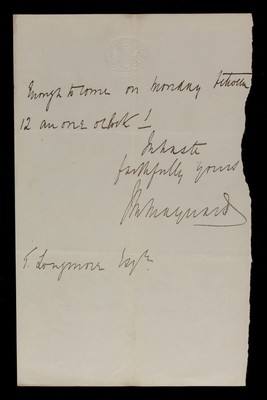 enough to come on Monday between
12 an one oclock!
In haste
faithfully yours
Maynard
T. Longmore Esqre.